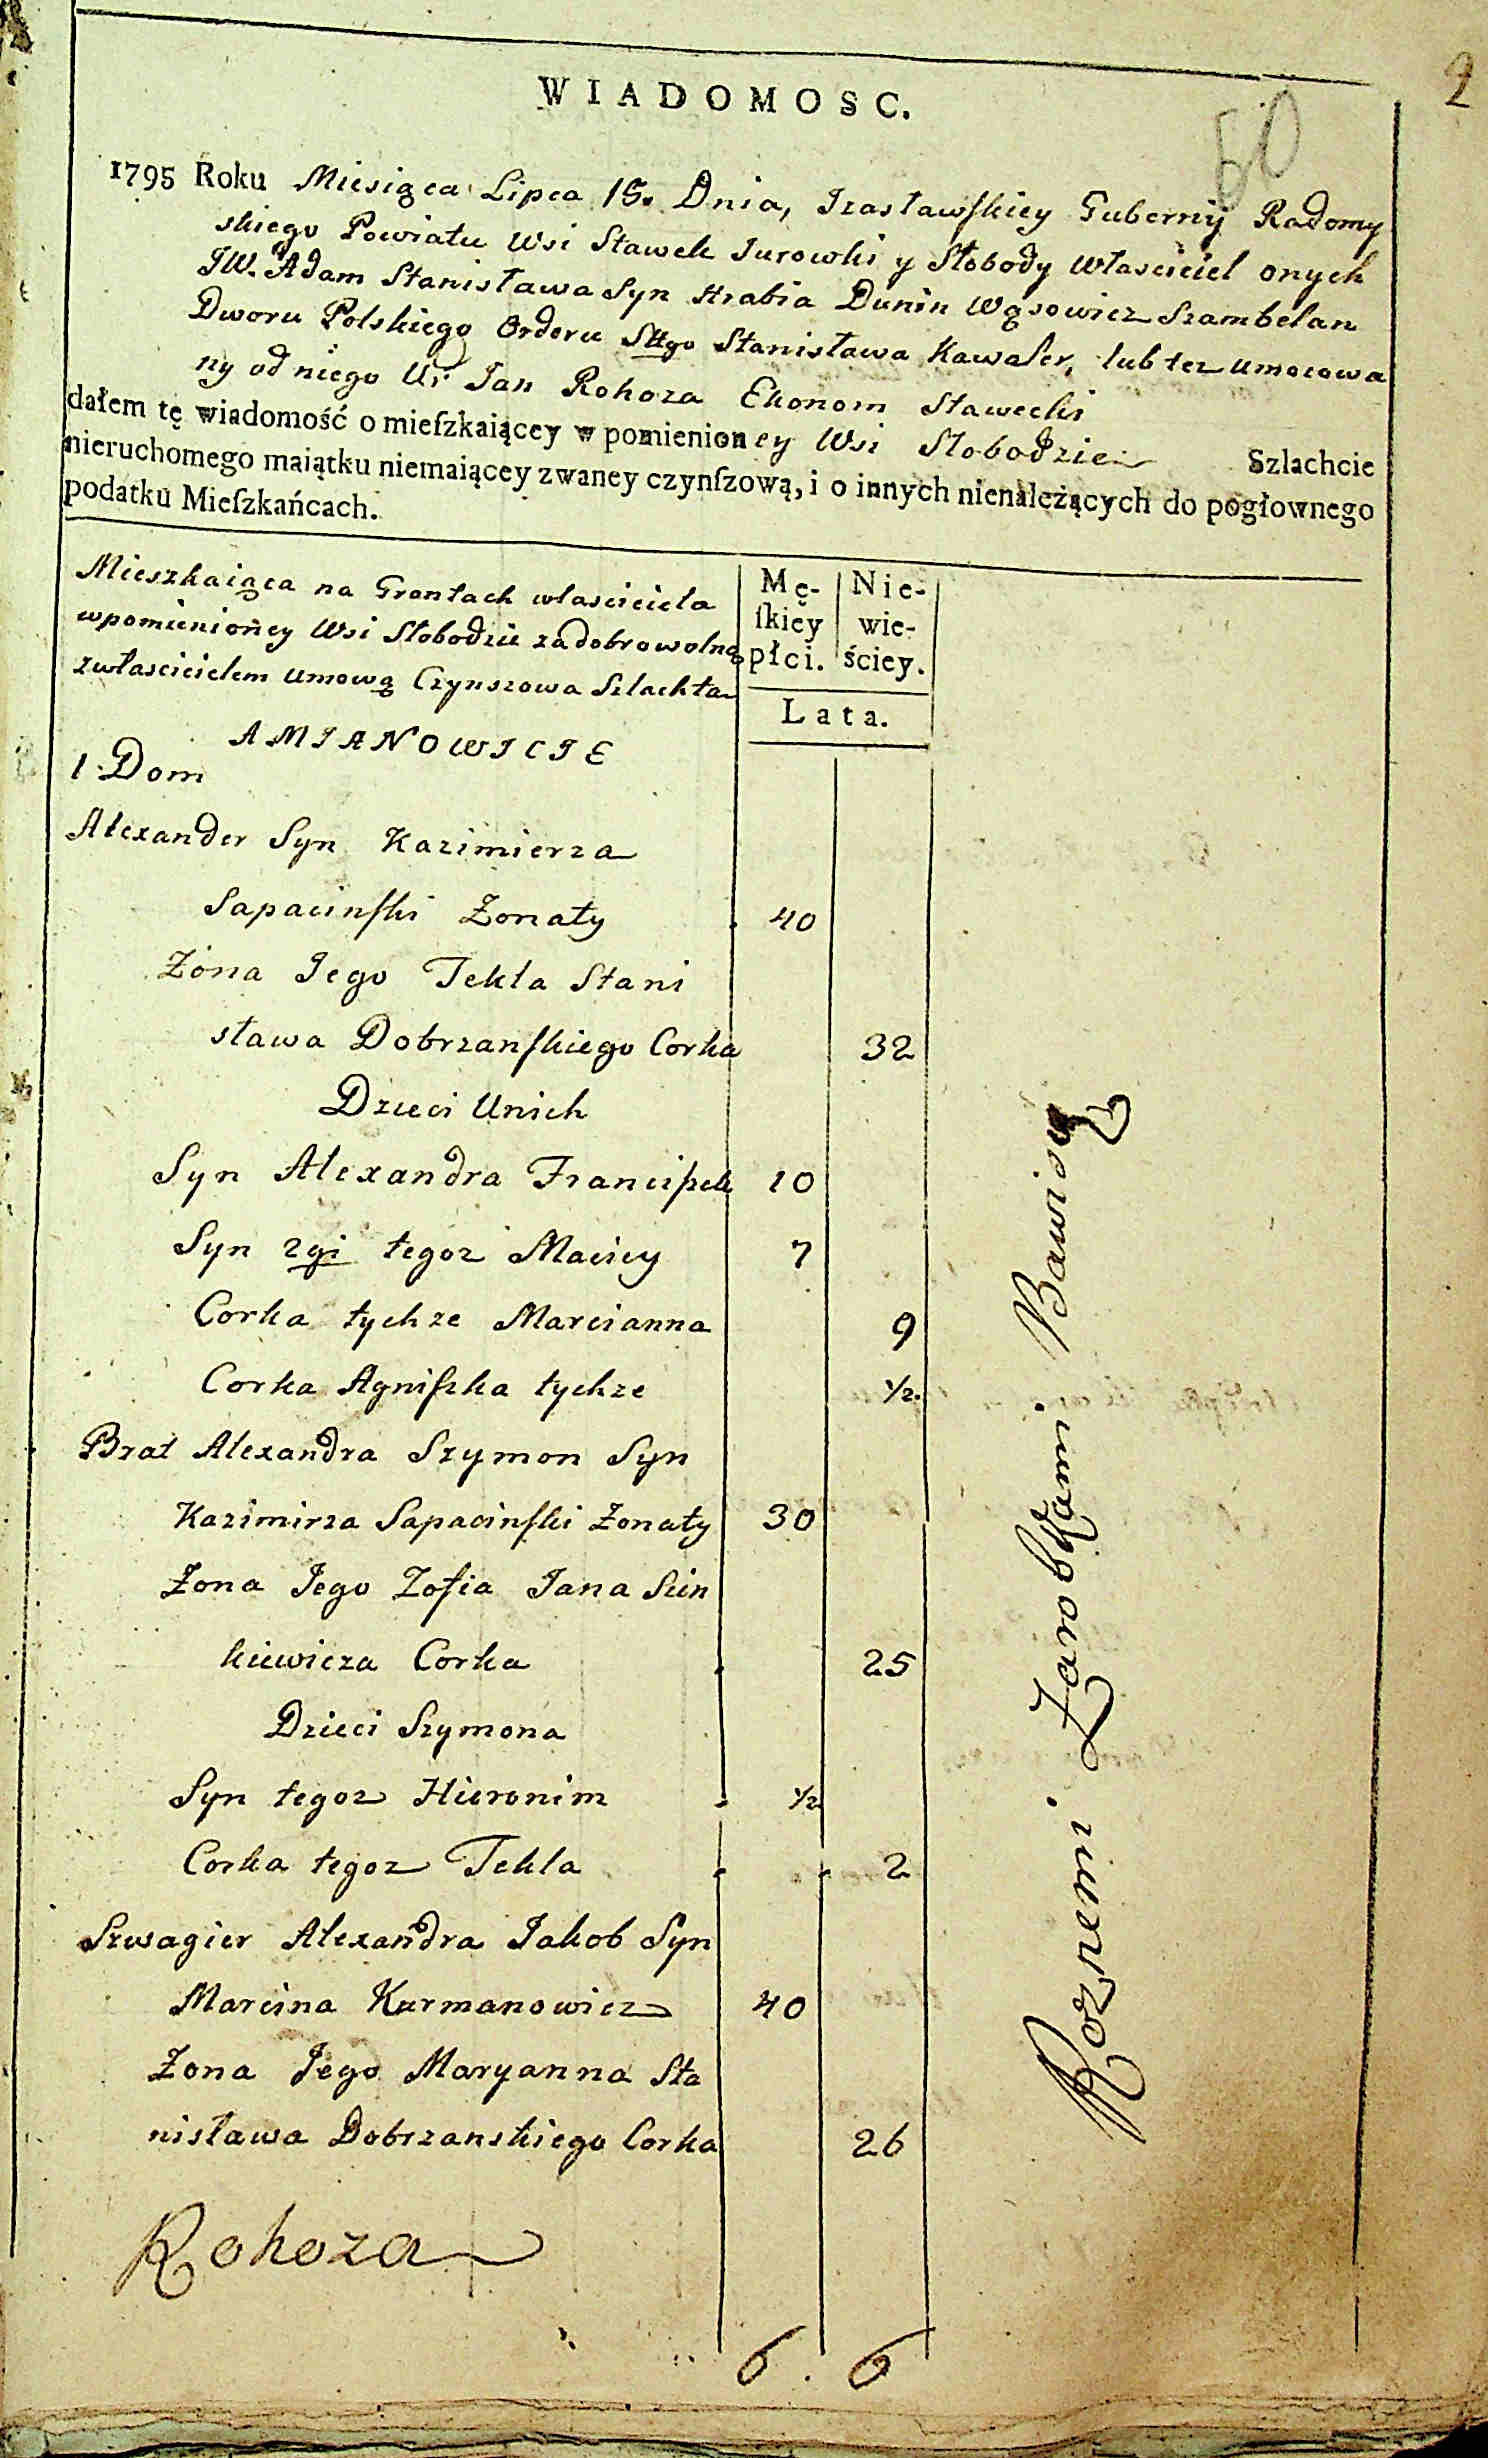 2
WIADOMOSC.
60
1795 Roku Miesiąca Lipca 15. Dnia, Jzasławſkiey Gubernij Radomy
skiego Powiatu Wsi Stawek Jurowki y Słobody Własciciel onych
JW. Adam Stanisława Syn Hrabia Dunin Wąsowicz Szambelan
Dworu Polskiego Orderu Sttgo Stanisława Kawaler, lub tez umocowa
ny od niego Ur Jan Rohoza Ekonom Stawecki
dałem tę wiadomość o mieſzkaiącey w pomienioney Wsi Słobodzie Szlachcie
nieruchomego maiątku niemaiącey zwaney czynſzową, i o innych nienależących do pogłownego
podatku Mieſzkańcach.
Mieszkaiąca na Grontach własciciela
wpomienioney Wsi Słobodzie zadobrowolną
zwłascicielem umową Czynszowa Szlachta
Mę-
ſkiey
płci.
Nie-
wie-
ściey.
Lata.
AMIANOWICIE
1 Dom
Alexander Syn Kazimierza
Sapacinſki Żonaty 40
Żona Jego Tekla Stani
sława Dobrzanſkiego Corka 32
Dzieci Unich
Syn Alexandra Franciszek 10
Syn 2gi tegoz Maciey 7
Corka tychze Marcianna 9
Corka Agniſzka tychze 1/2.
Brat Alexandra Szymon Syn
Kazimirza Sapacinſki Żonaty 30
Żona Jego Zofia Jana Sien
kiewicza Corka 25
Dzieci Szymona
Syn tegoz Hieronim 1/2
Corka tegoz Tekla 2
Szwagier Alexandra Jakob Syn
Marcina Kurmanowicz 40
Żona Jego Maryanna Sta
nisława Dobrzanskiego Corka 26
Rohoza
6. 6
Roznemi Zarobkami Bawią